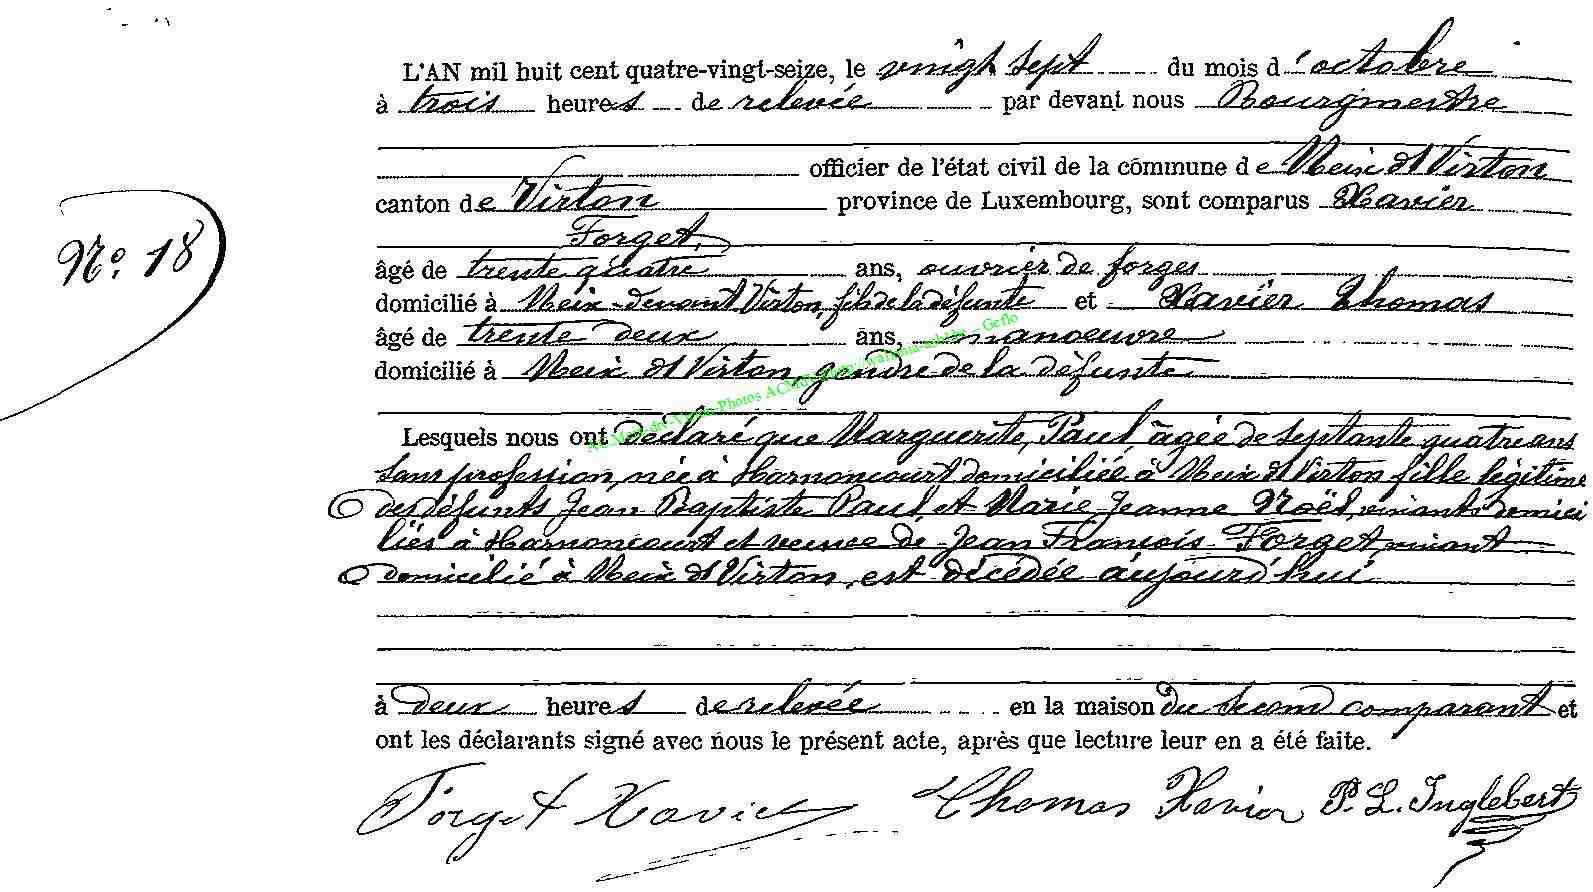 L'AN mil huit cent quatre-vingt-seize, le vingt sept du mois d'octobre
à trois heures de relevée par devant nous Bourgmestre
officier de l'état civil de la commune de Meix dt Virton
canton de Virton province de Luxembourg, sont comparus Xavier
Forget,
N° 18
âgé de trente quatre ans, ouvrier de forges
domicilié à Meix-devant Virton, fils de la défunte et Xavier Thomas
âgé de trente deux ans, manoeuvre
domicilié à Meix dt Virton, gendre de la défunte
Photos - Geflo
Lesquels nous ont déclaré que Marguerite, Paul, âgée de septante quatre ans
sans profession, née à Harnoncourt domiciliée à Meix dt Virton fille légitime
des défunts Jean Baptiste Paul et Marie Jeanne Noël, vivants domici
liés à Harnoncourt et veuve de Jean François Forget, vivant
domicilié à Meix dt Virton, est décédée aujourd'hui
à deux heures de relevée en la maison du second comparant et
ont les déclarants signé avec nous le présent acte, après que lecture leur en a été faite.
Forget Xavier Thomas Xavier P. L. Inglebert